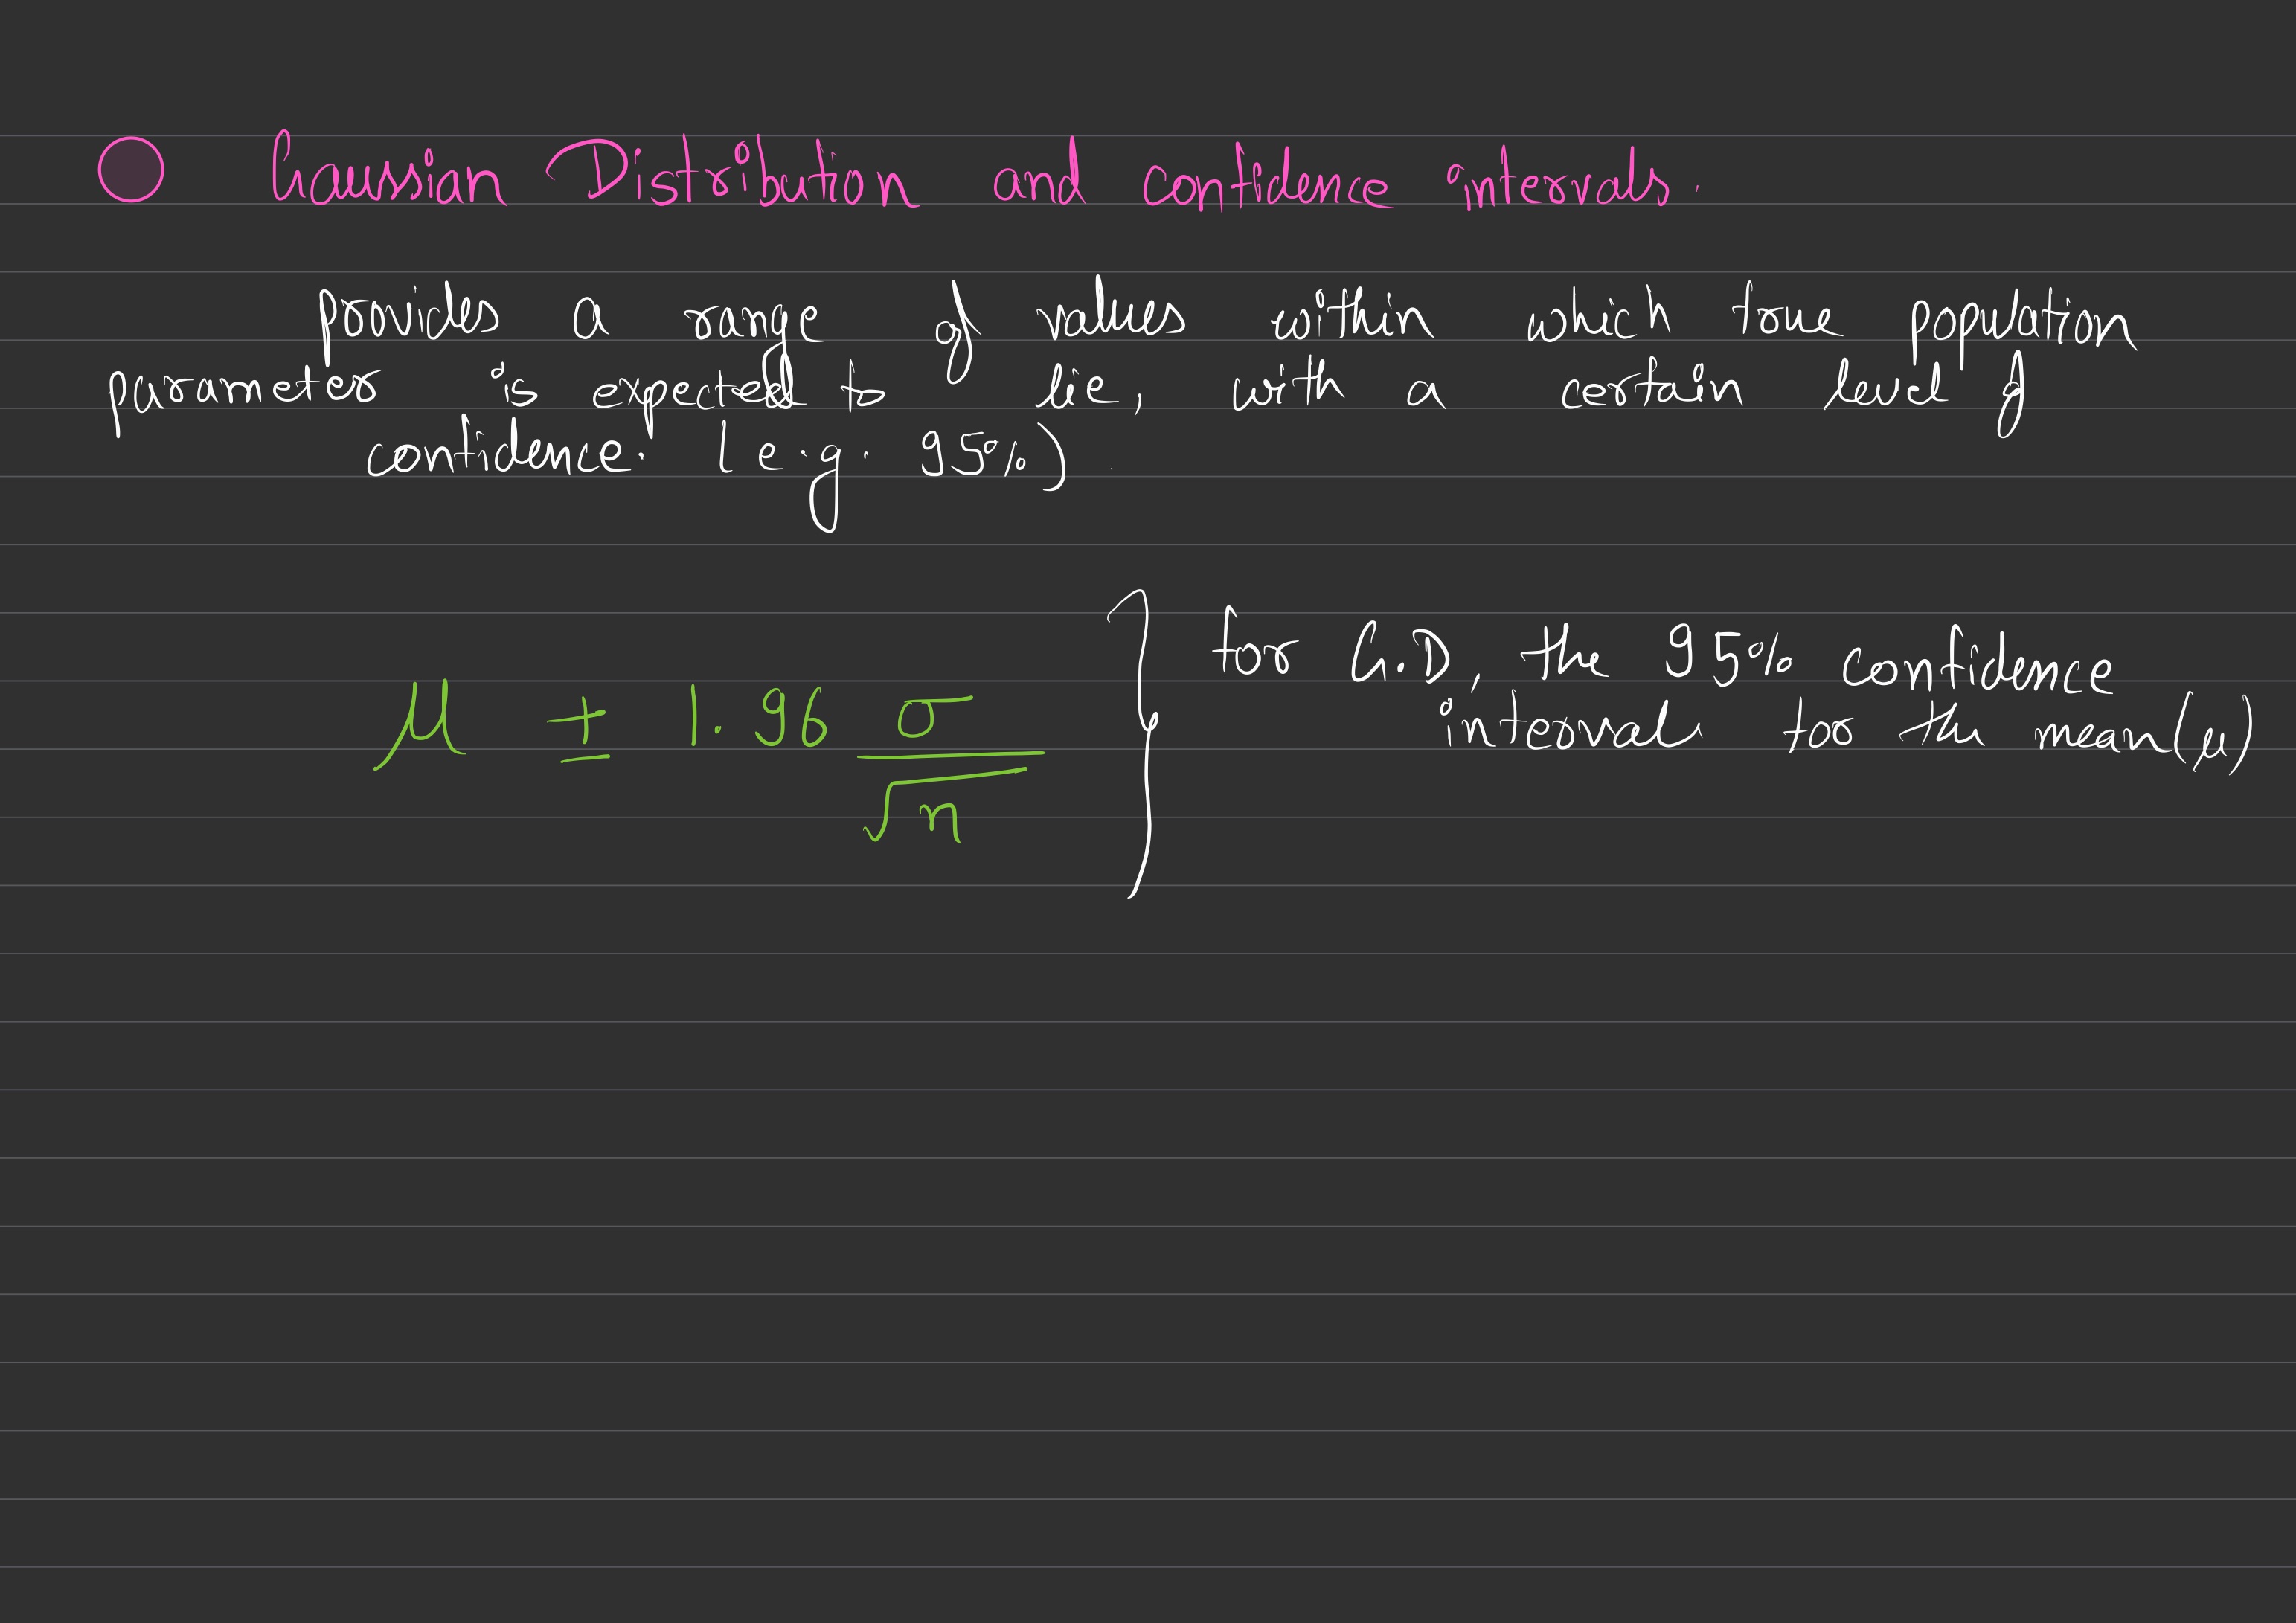 Gaussian Distribution and confidence intervals.
provides a range of values within which true population
parameter is expected to lie, with a certain level of
confidence. (e.g. 95%).
for G.D, the 95% confidence
μ ± 1.96 σ/√n
intervals for the mean(μ)